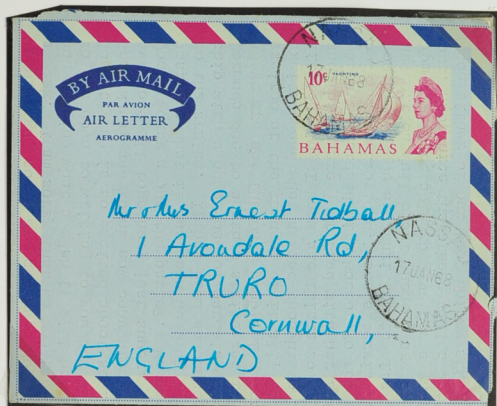 BY AIR MAIL
PAR AVION
AIR LETTER
AEROGRAMME
10c YACHTING
BAHAMAS
17 JAN 68
BAHAMAS
Mr & Mrs Ernest Tidball
1 Avondale Rd,
TRURO
Cornwall,
ENGLAND
NASSAU
17 JAN 68
BAHAMAS